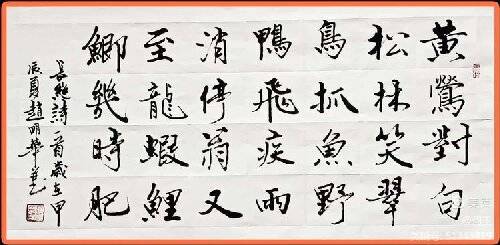 黄鶯對句
松林笑翠
鳥抓魚野
鴨飛疾雨
消停翁又
至龍蝦鯉
鯽幾時肥
詩一首歲在甲
辰夏趙明華